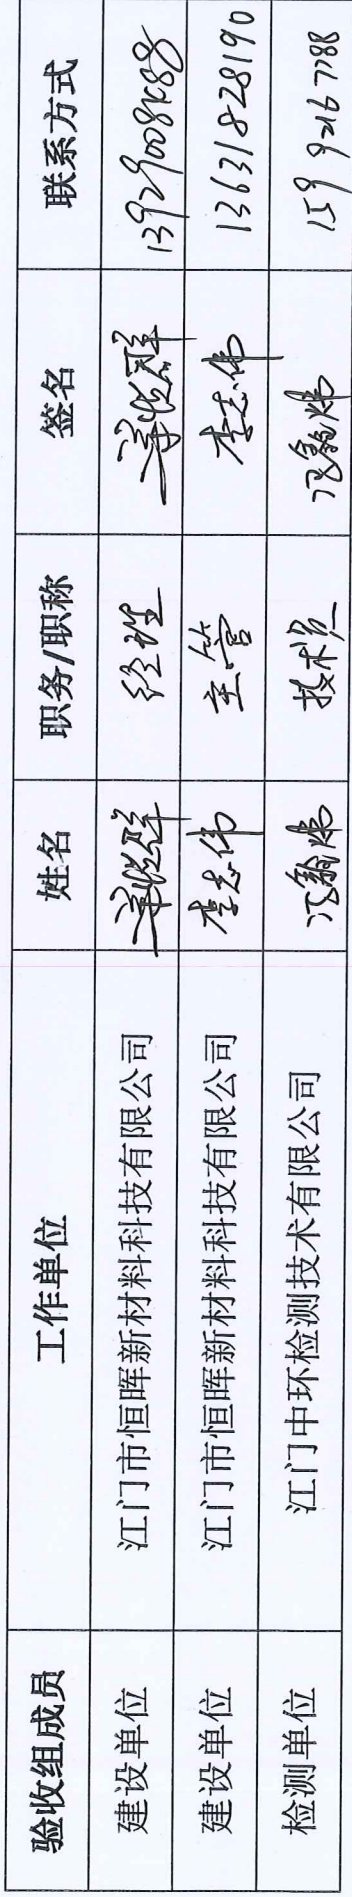 验收组成员 工作单位 姓名 职务/职称 签名 联系方式
建设单位 江门市恒晖新材料科技有限公司 经理
建设单位 江门市恒晖新材料科技有限公司 李志伟 主管 李志伟 13631828190
检测单位 江门中环检测技术有限公司 技术员 159 9216 7788